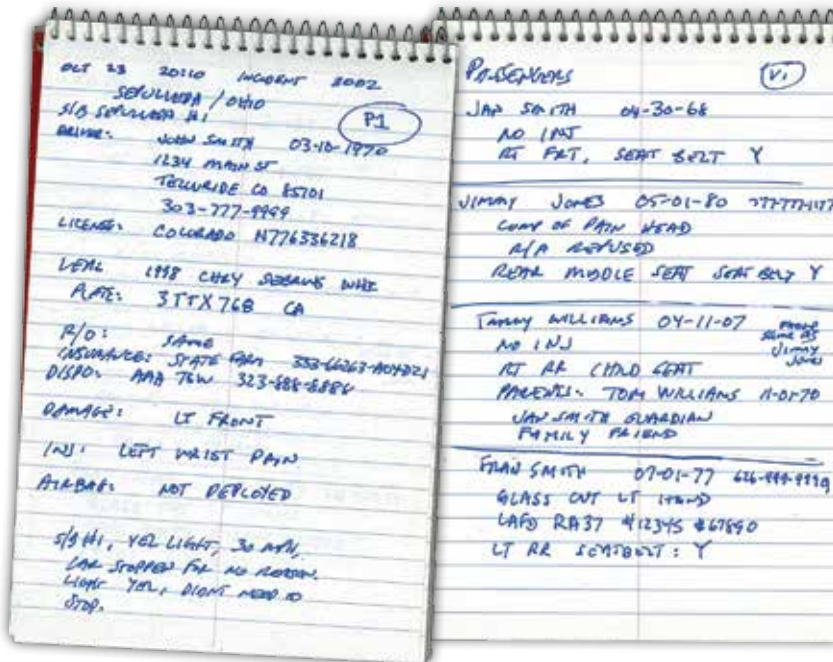 OCT 23 20:10 INCIDENT 2002
SEPULVEDA / OHIO
S/B SEPULVEDA #1
P1
DRIVER: JOHN SMITH 03-10-1970
1234 MAIN ST
TELLURIDE CO 85701
303-777-9999
LICENSE: COLORADO N776336218
VEH: 1998 CHRY SEBRING WHI
PLATE: 3TTX768 CA
R/O: SAME
INSURANCE: STATE FARM
DISPO: AAA TOW 323-888-8888
DAMAGE: LT FRONT
INJ: LEFT WRIST PAIN
AIRBAG: NOT DEPLOYED
S/B #1, YEL LIGHT, 30 MPH,
CAR STOPPED FOR NO REASON.
LIGHT YEL, DIDNT NEED TO
STOP.
PASSENGERS V1
JAN SMITH 04-30-68
NO INJ
RT FRT, SEAT BELT Y
JIMMY JONES 05-01-80
COMP OF PAIN HEAD
R/A REFUSED
REAR MIDDLE SEAT SEAT BELT Y
TAMMY WILLIAMS 04-11-07 PHONE
SAME AS
JIMMY
JONES
NO INJ
RT RR CHILD SEAT
PARENTS: TOM WILLIAMS 11-01-70
JAN SMITH GUARDIAN
FAMILY FRIEND
FRAN SMITH 07-01-77 626-999-9999
GLASS CUT LT HAND
LAFD RA37 #12345 #67890
LT RR SEATBELT: Y